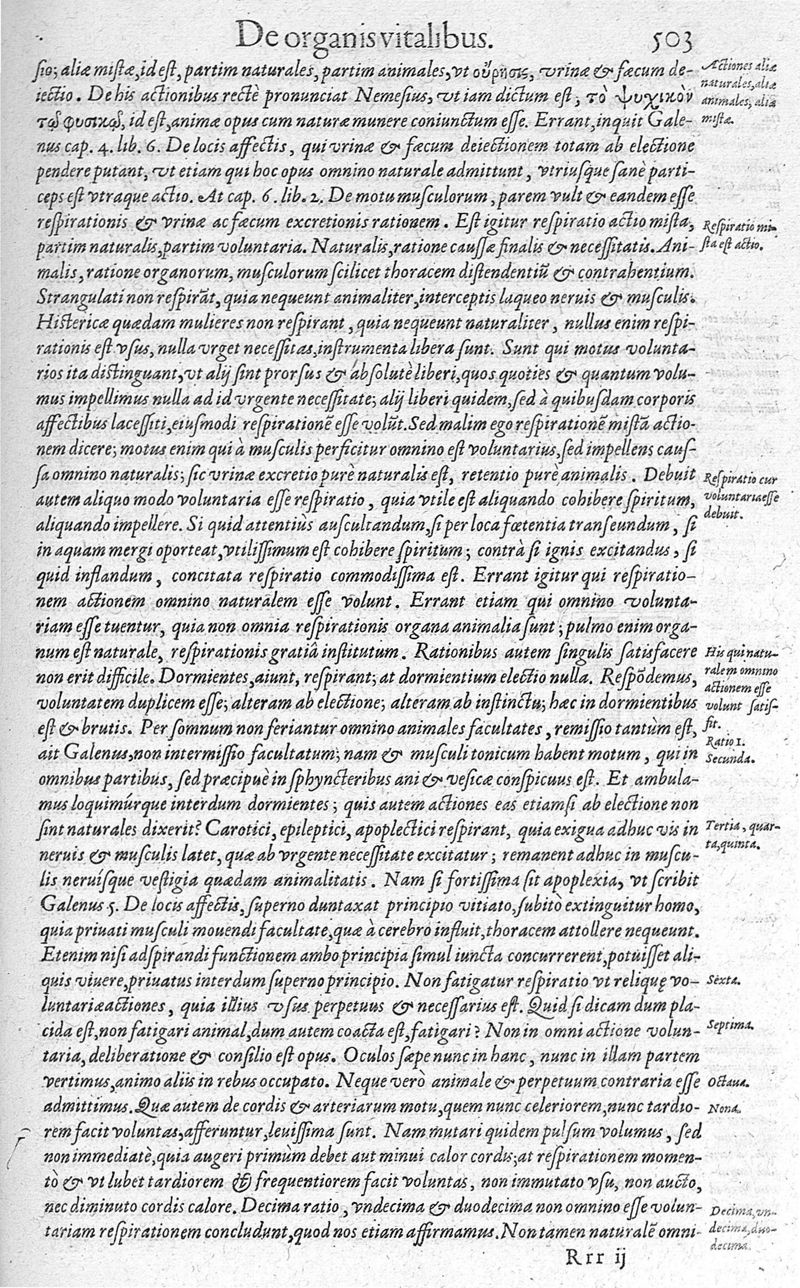 De organis vitalibus. 503
sio; aliæ mistæ, id est, partim naturales, partim animales, vt οὔρησις, vrinæ & fæcum de-
iectio. De his actionibus rectè pronunciat Nemesius, vt iam dictum est, τὸ ψυχικὸν
τῷ φυσικῷ, id est, animæ opus cum naturæ munere coniunctum esse. Errant, inquit Gale-
nus cap. 4. lib. 6. De locis affectis, qui vrinæ & fæcum deiectionem totam ab electione
pendere putant, vt etiam qui hoc opus omnino naturale admittunt, vtriusque sanè parti-
ceps est vtraque actio. At cap. 6. lib. 2. De motu musculorum, parem vult & eandem esse
respirationis & vrinæ ac fæcum excretionis rationem. Est igitur respiratio actio mista,
partim naturalis, partim voluntaria. Naturalis, ratione caussæ finalis & necessitatis. Ani-
malis, ratione organorum, musculorum scilicet thoracem distendentiū & contrahentium.
Strangulati non respirāt, quia nequeunt animaliter, interceptis laqueo neruis & musculis.
Histericæ quædam mulieres non respirant, quia nequeunt naturaliter, nullus enim respi-
rationis est vsus, nulla vrget necessitas, instrumenta libera sunt. Sunt qui motus volunta-
rios ita distinguant, vt alij sint prorsus & absolutè liberi, quos quoties & quantum volu-
mus impellimus nulla ad id vrgente necessitate; alij liberi quidem, sed à quibusdam corporis
affectibus lacessiti, eiusmodi respirationē esse volūt. Sed malim ego respirationē mistā actio-
nem dicere; motus enim qui à musculis perficitur omnino est voluntarius, sed impellens caus-
sa omnino naturalis; sic vrinæ excretio purè naturalis est, retentio purè animalis. Debuit
autem aliquo modo voluntaria esse respiratio, quia vtile est aliquando cohibere spiritum,
aliquando impellere. Si quid attentiùs auscultandum, si per loca fœtentia transeundum, si
in aquam mergi oporteat, vtilissimum est cohibere spiritum; contrà si ignis excitandus, si
quid inflandum, concitata respiratio commodissima est. Errant igitur qui respiratio-
nem actionem omnino naturalem esse volunt. Errant etiam qui omnino volunta-
riam esse tuentur, quia non omnia respirationis organa animalia sunt; pulmo enim orga-
num est naturale, respirationis gratiâ institutum. Rationibus autem singulis satisfacere
non erit difficile. Dormientes, aiunt, respirant; at dormientium electio nulla. Respōdemus,
voluntatem duplicem esse; alteram ab electione; alteram ab instinctu; hæc in dormientibus
est & brutis. Per somnum non feriantur omnino animales facultates, remissio tantùm est,
ait Galenus, non intermissio facultatum; nam & musculi tonicum habent motum, qui in
omnibus partibus, sed præcipuè in sphyncteribus ani & vesicæ conspicuus est. Et ambula-
mus loquimúrque interdum dormientes; quis autem actiones eas etiamsi ab electione non
sint naturales dixerit? Carotici, epileptici, apoplectici respirant, quia exigua adhuc vis in
neruis & musculis latet, quæ ab vrgente necessitate excitatur; remanent adhuc in muscu-
lis neruisque vestigia quædam animalitatis. Nam si fortissima sit apoplexia, vt scribit
Galenus 5. De locis affectis, superno duntaxat principio vitiato, subitò extinguitur homo,
quia priuati musculi mouendi facultate, quæ à cerebro influit, thoracem attollere nequeunt.
Etenim nisi adspirandi functionem ambo principia simul iuncta concurrerent, potuisset ali-
quis viuere, priuatus interdum superno principio. Non fatigatur respiratio vt reliquę vo-
luntariæ actiones, quia illius vsus perpetuus & necessarius est. Quid si dicam dum pla-
cida est, non fatigari animal, dum autem coacta est, fatigari? Non in omni actione volun-
taria, deliberatione & consilio est opus. Oculos sæpe nunc in hanc, nunc in illam partem
vertimus, animo aliis in rebus occupato. Neque verò animale & perpetuum contraria esse
admittimus. Quæ autem de cordis & arteriarum motu, quem nunc celeriorem, nunc tardio-
rem facit voluntas, afferuntur, leuissima sunt. Nam mutari quidem pulsum volumus, sed
non immediatè, quia augeri primùm debet aut minui calor cordis; at respirationem momen-
tò & vt lubet tardiorem & frequentiorem facit voluntas, non immutato vsu, non aucto,
nec diminuto cordis calore. Decima ratio, vndecima & duodecima non omnino esse volun-
tariam respirationem concludunt, quod nos etiam affirmamus. Non tamen naturalē omni-
Rrr ij
Actiones aliæ
naturales, aliæ
animales, aliæ
mistæ.
Respiratio mi-
sta est actio.
Respiratio cur
voluntaria esse
debuit.
His qui natu-
ralem omnino
actionem esse
volunt satis-
fit.
Ratio 1.
Secunda.
Tertia, quar-
ta, quinta.
Sexta.
Septima.
Octaua.
Nona.
Decima, vn-
decima, duo-
decima.